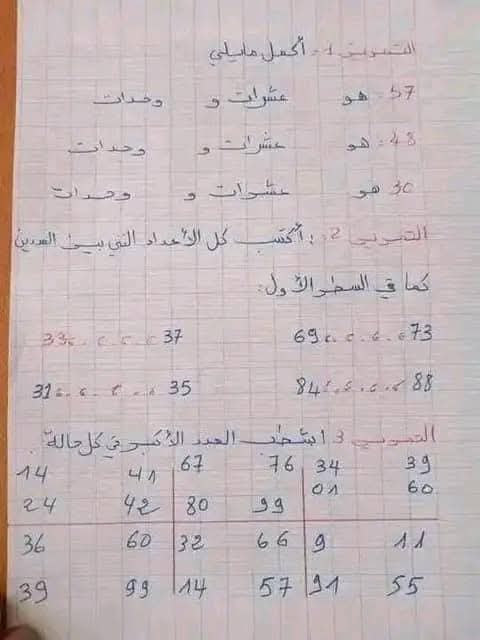 التمرين 1: أكمل مايلي
57: هو عشرات و وحدات
48: هو عشرات و وحدات
30 هو عشرات و وحدات
التمرين 2: أكتب كل الأعداد التي بين العددين
كما في السطر الأول:
69 ، . ، . ، . ، 73 33 ، . ، . ، . ، 37
84 ، . ، . ، . ، 88 31 ، . ، . ، . ، 35
التمرين 3 أشطب العدد الأكبر في كل حالة.
14 41 67 76 34 39
24 42 80 99 01 60
36 60 32 66 9 11
39 99 14 57 91 55